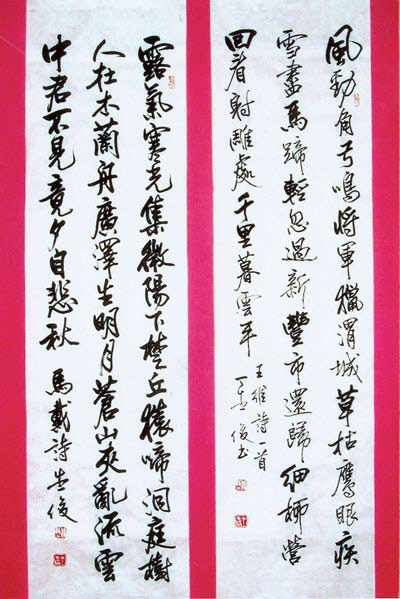 風勁角弓鳴将軍獵渭城草枯鷹眼疾
雪盡馬蹄輕忽過新豐市還歸細柳營
回看射雕處千里暮雲平
王維詩一首
俊书
露氣寒光集微陽下楚丘猿啼洞庭樹
人在木蘭舟廣澤生明月蒼山夾亂流雲
中君不見竟夕自悲秋 馬戴詩 俊